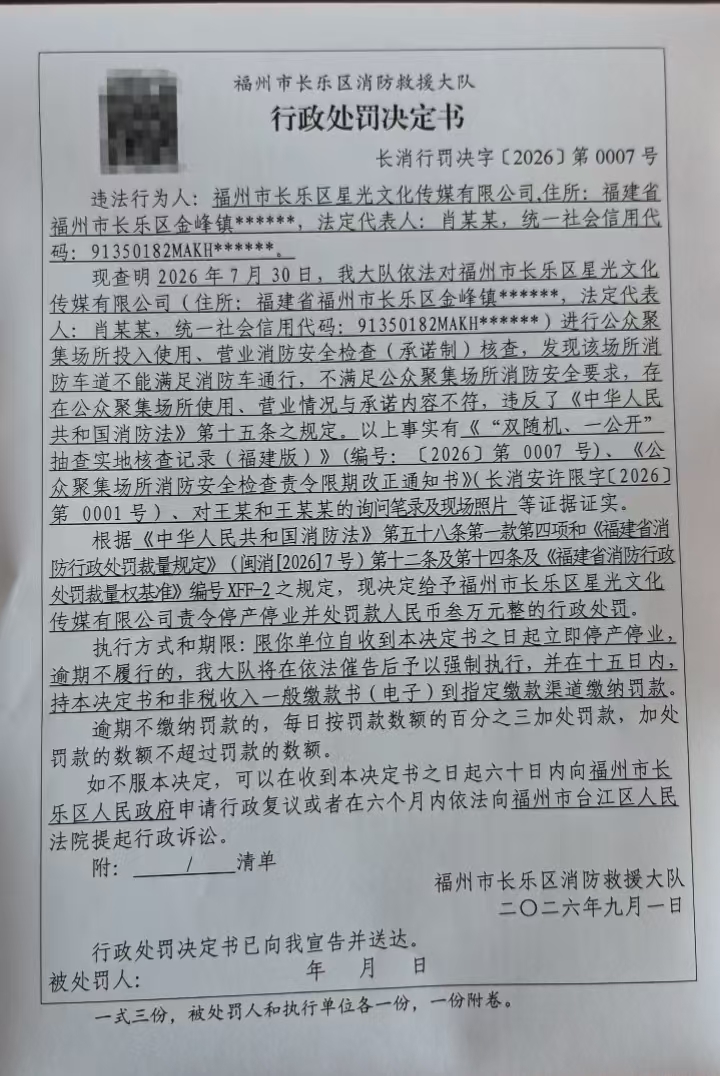 福州市长乐区消防救援大队
行政处罚决定书
长消行罚决字〔2026〕第 0007 号
违法行为人：福州市长乐区星光文化传媒有限公司,住所：福建省
福州市长乐区金峰镇******，法定代表人：肖某某，统一社会信用代
码：91350182MAKH******。
现查明 2026 年 7 月 30 日，我大队依法对福州市长乐区星光文化
传媒有限公司（住所：福建省福州市长乐区金峰镇******，法定代表
人：肖某某，统一社会信用代码：91350182MAKH******）进行公众聚
集场所投入使用、营业消防安全检查（承诺制）核查，发现该场所消
防车道不能满足消防车通行，不满足公众聚集场所消防安全要求，存
在公众聚集场所使用、营业情况与承诺内容不符，违反了《中华人民
共和国消防法》第十五条之规定。以上事实有《“双随机、一公开”
抽查实地核查记录（福建版）》(编号：〔2026〕第 0007 号）、《公
众聚集场所消防安全检查责令限期改正通知书》（长消安许限字〔2026〕
第 0001 号）、对王某和王某某的询问笔录及现场照片 等证据证实。
根据《中华人民共和国消防法》第五十八条第一款第四项和《福建省消
防行政处罚裁量规定》（闽消[2026]7 号）第十二条及第十四条及《福建省消防行政
处罚裁量权基准》编号 XFF-2 之规定，现决定给予福州市长乐区星光文化
传媒有限公司责令停产停业并处罚款人民币叁万元整的行政处罚。
执行方式和期限：限你单位自收到本决定书之日起立即停产停业，
逾期不履行的，我大队将在依法催告后予以强制执行，并在十五日内，
持本决定书和非税收入一般缴款书（电子）到指定缴款渠道缴纳罚款。
逾期不缴纳罚款的，每日按罚款数额的百分之三加处罚款，加处
罚款的数额不超过罚款的数额。
如不服本决定，可以在收到本决定书之日起六十日内向福州市长
乐区人民政府申请行政复议或者在六个月内依法向福州市台江区人民
法院提起行政诉讼。
附：/清单
福州市长乐区消防救援大队
二〇二六年九月一日
行政处罚决定书已向我宣告并送达。
被处罚人： 年 月 日
一式三份，被处罚人和执行单位各一份，一份附卷。